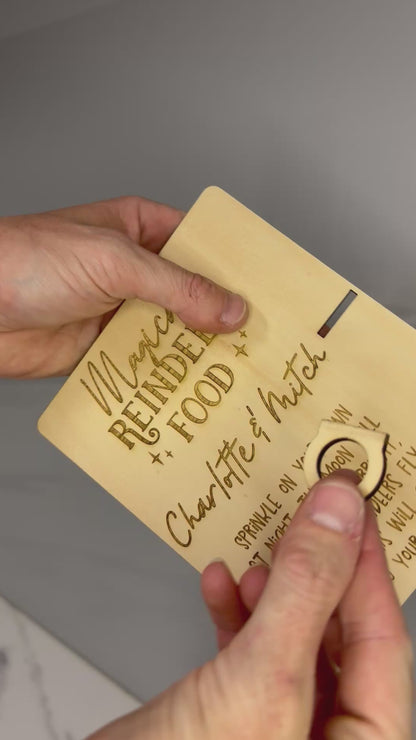 Magica
REINDEE
FOOD
Charlotte & Mitch
SPRINKLE ON YO WN
AT NIGHT THE MOON ILL
DEERS FLY,
S WILL
S YOUR